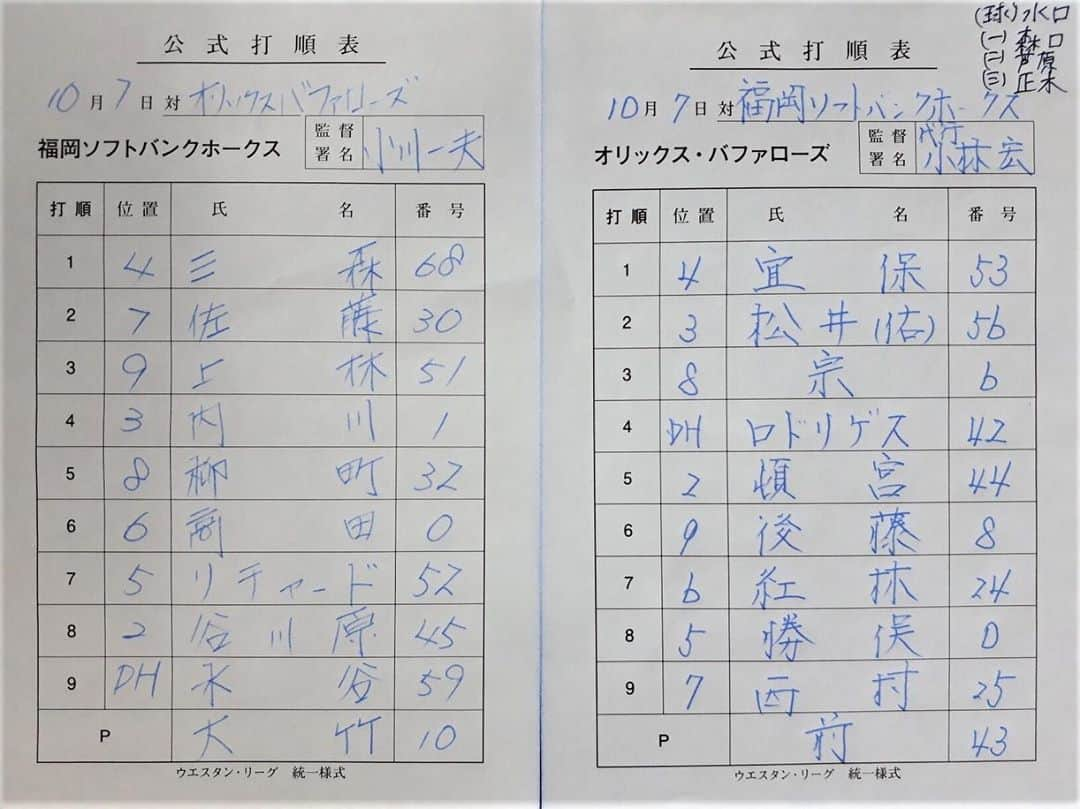 公式打順表
10月7日対オリックスバファローズ
福岡ソフトバンクホークス 監督署名 小川一夫
打順 位置 氏名 番号
1 4 三森 68
2 7 佐藤 30
3 9 上林 51
4 3 内川 1
5 8 柳町 32
6 6 髙田 0
7 5 リチャード 52
8 2 谷川原 45
9 DH 水谷 59
P 大竹 10
ウエスタン・リーグ 統一様式
(球)水口
(一)森口
(二)芦原
(三)正木
公式打順表
10月7日対福岡ソフトバンクホークス
オリックス・バファローズ 監督署名 代行 小林宏
打順 位置 氏名 番号
1 4 宜保 53
2 3 松井(佑) 56
3 8 宗 6
4 DH ロドリゲス 42
5 2 頓宮 44
6 9 後藤 8
7 6 紅林 24
8 5 勝俣 0
9 7 西村 25
P 前 43
ウエスタン・リーグ 統一様式